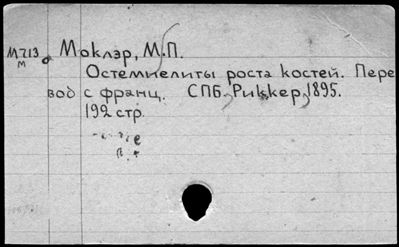 М713 Моклэр, М.П.
М
Остемиелиты роста костей. Пере
вод с франц. СПБ. Риккер, 1895.
192 стр.